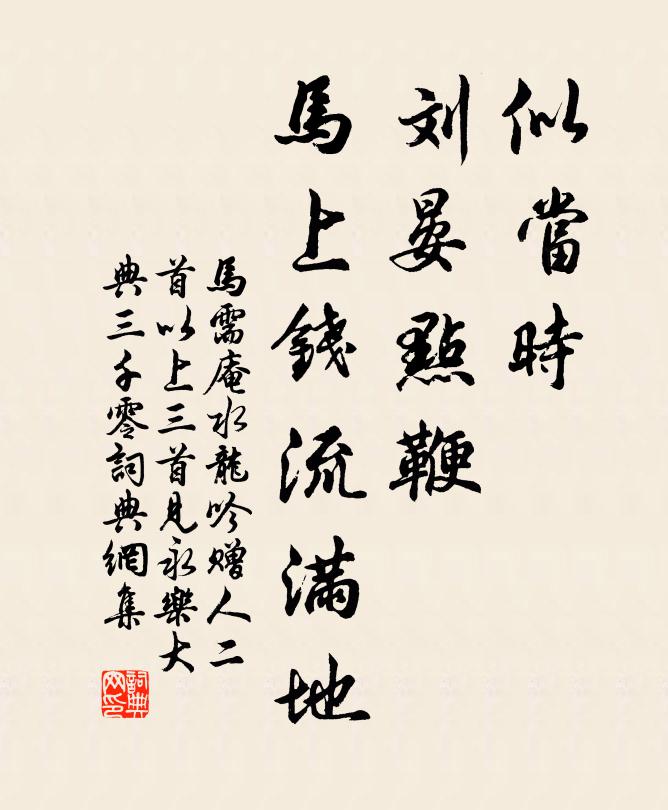 似當時
刘晏點鞭
馬上錢流滿地
馬需庵水龍吟赠人二
首以上三首見永樂大
典三千零詞典網集
詞典
网印